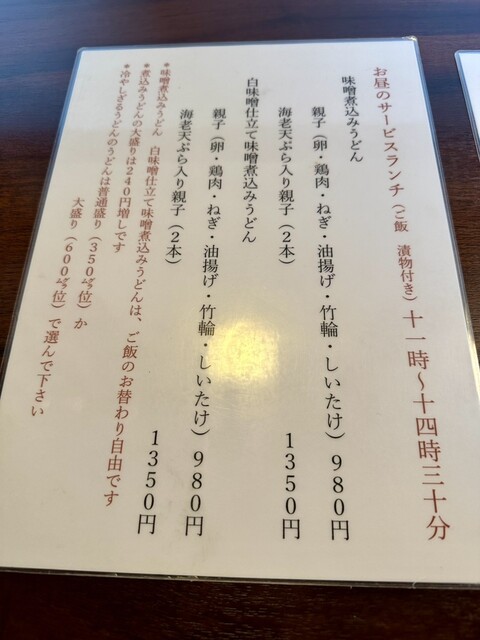 お昼のサービスランチ（ご飯　漬物付き）十一時～十四時三十分
味噌煮込みうどん
親子（卵・鶏肉・ねぎ・油揚げ・竹輪・しいたけ）９８０円
海老天ぷら入り親子（２本）　１３５０円
白味噌仕立て味噌煮込みうどん
親子（卵・鶏肉・ねぎ・油揚げ・竹輪・しいたけ）９８０円
海老天ぷら入り親子（２本）　１３５０円
＊味噌煮込みうどん　白味噌仕立て味噌煮込みうどんは、ご飯のお替わり自由です
＊煮込みうどんの大盛りは２４０円増しです
＊冷やしざるうどんのうどんは普通盛り（３５０㌘位）か
大盛り（６００㌘位）で選んで下さい